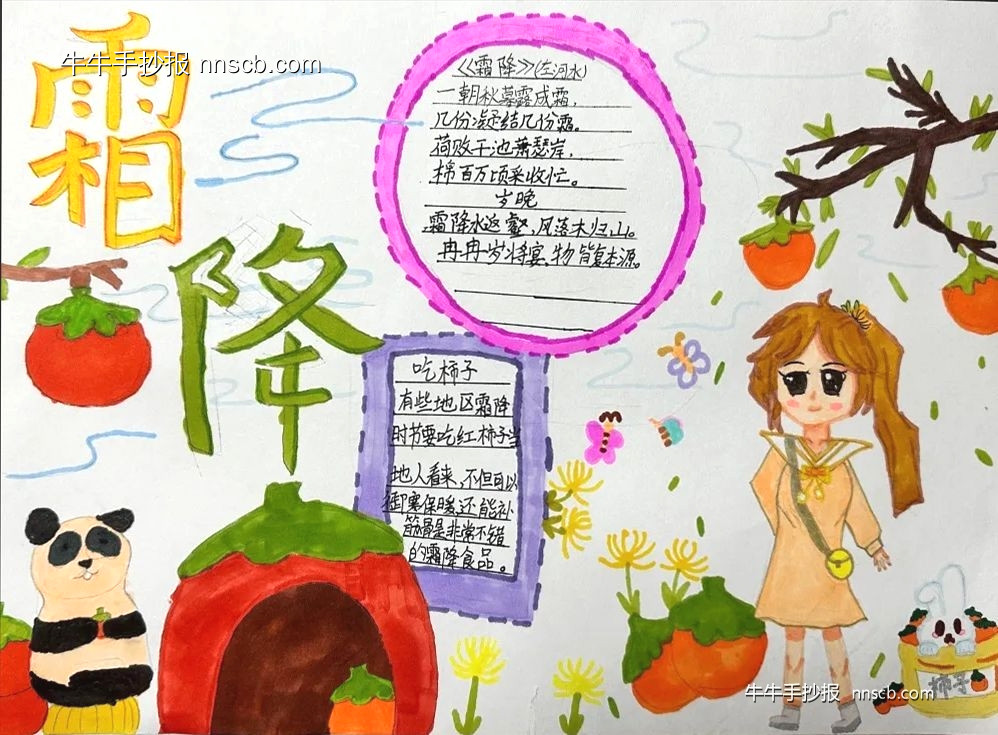 霜
降
牛牛手抄报 nnscb.com
《霜降》(左河水)
一朝秋暮露成霜,
几份凝结几份霜。
荷败千池萧瑟岸,
棉百万顷采收忙。
岁晚
霜降水返壑,风落木归山。
冉冉岁将宴,物皆复本源。
吃柿子
有些地区霜降
时节要吃红柿子当
地人看来,不但可以
御寒保暖,还能补
筋骨是非常不错
的霜降食品。
柿子
牛牛手抄报 nnscb.com